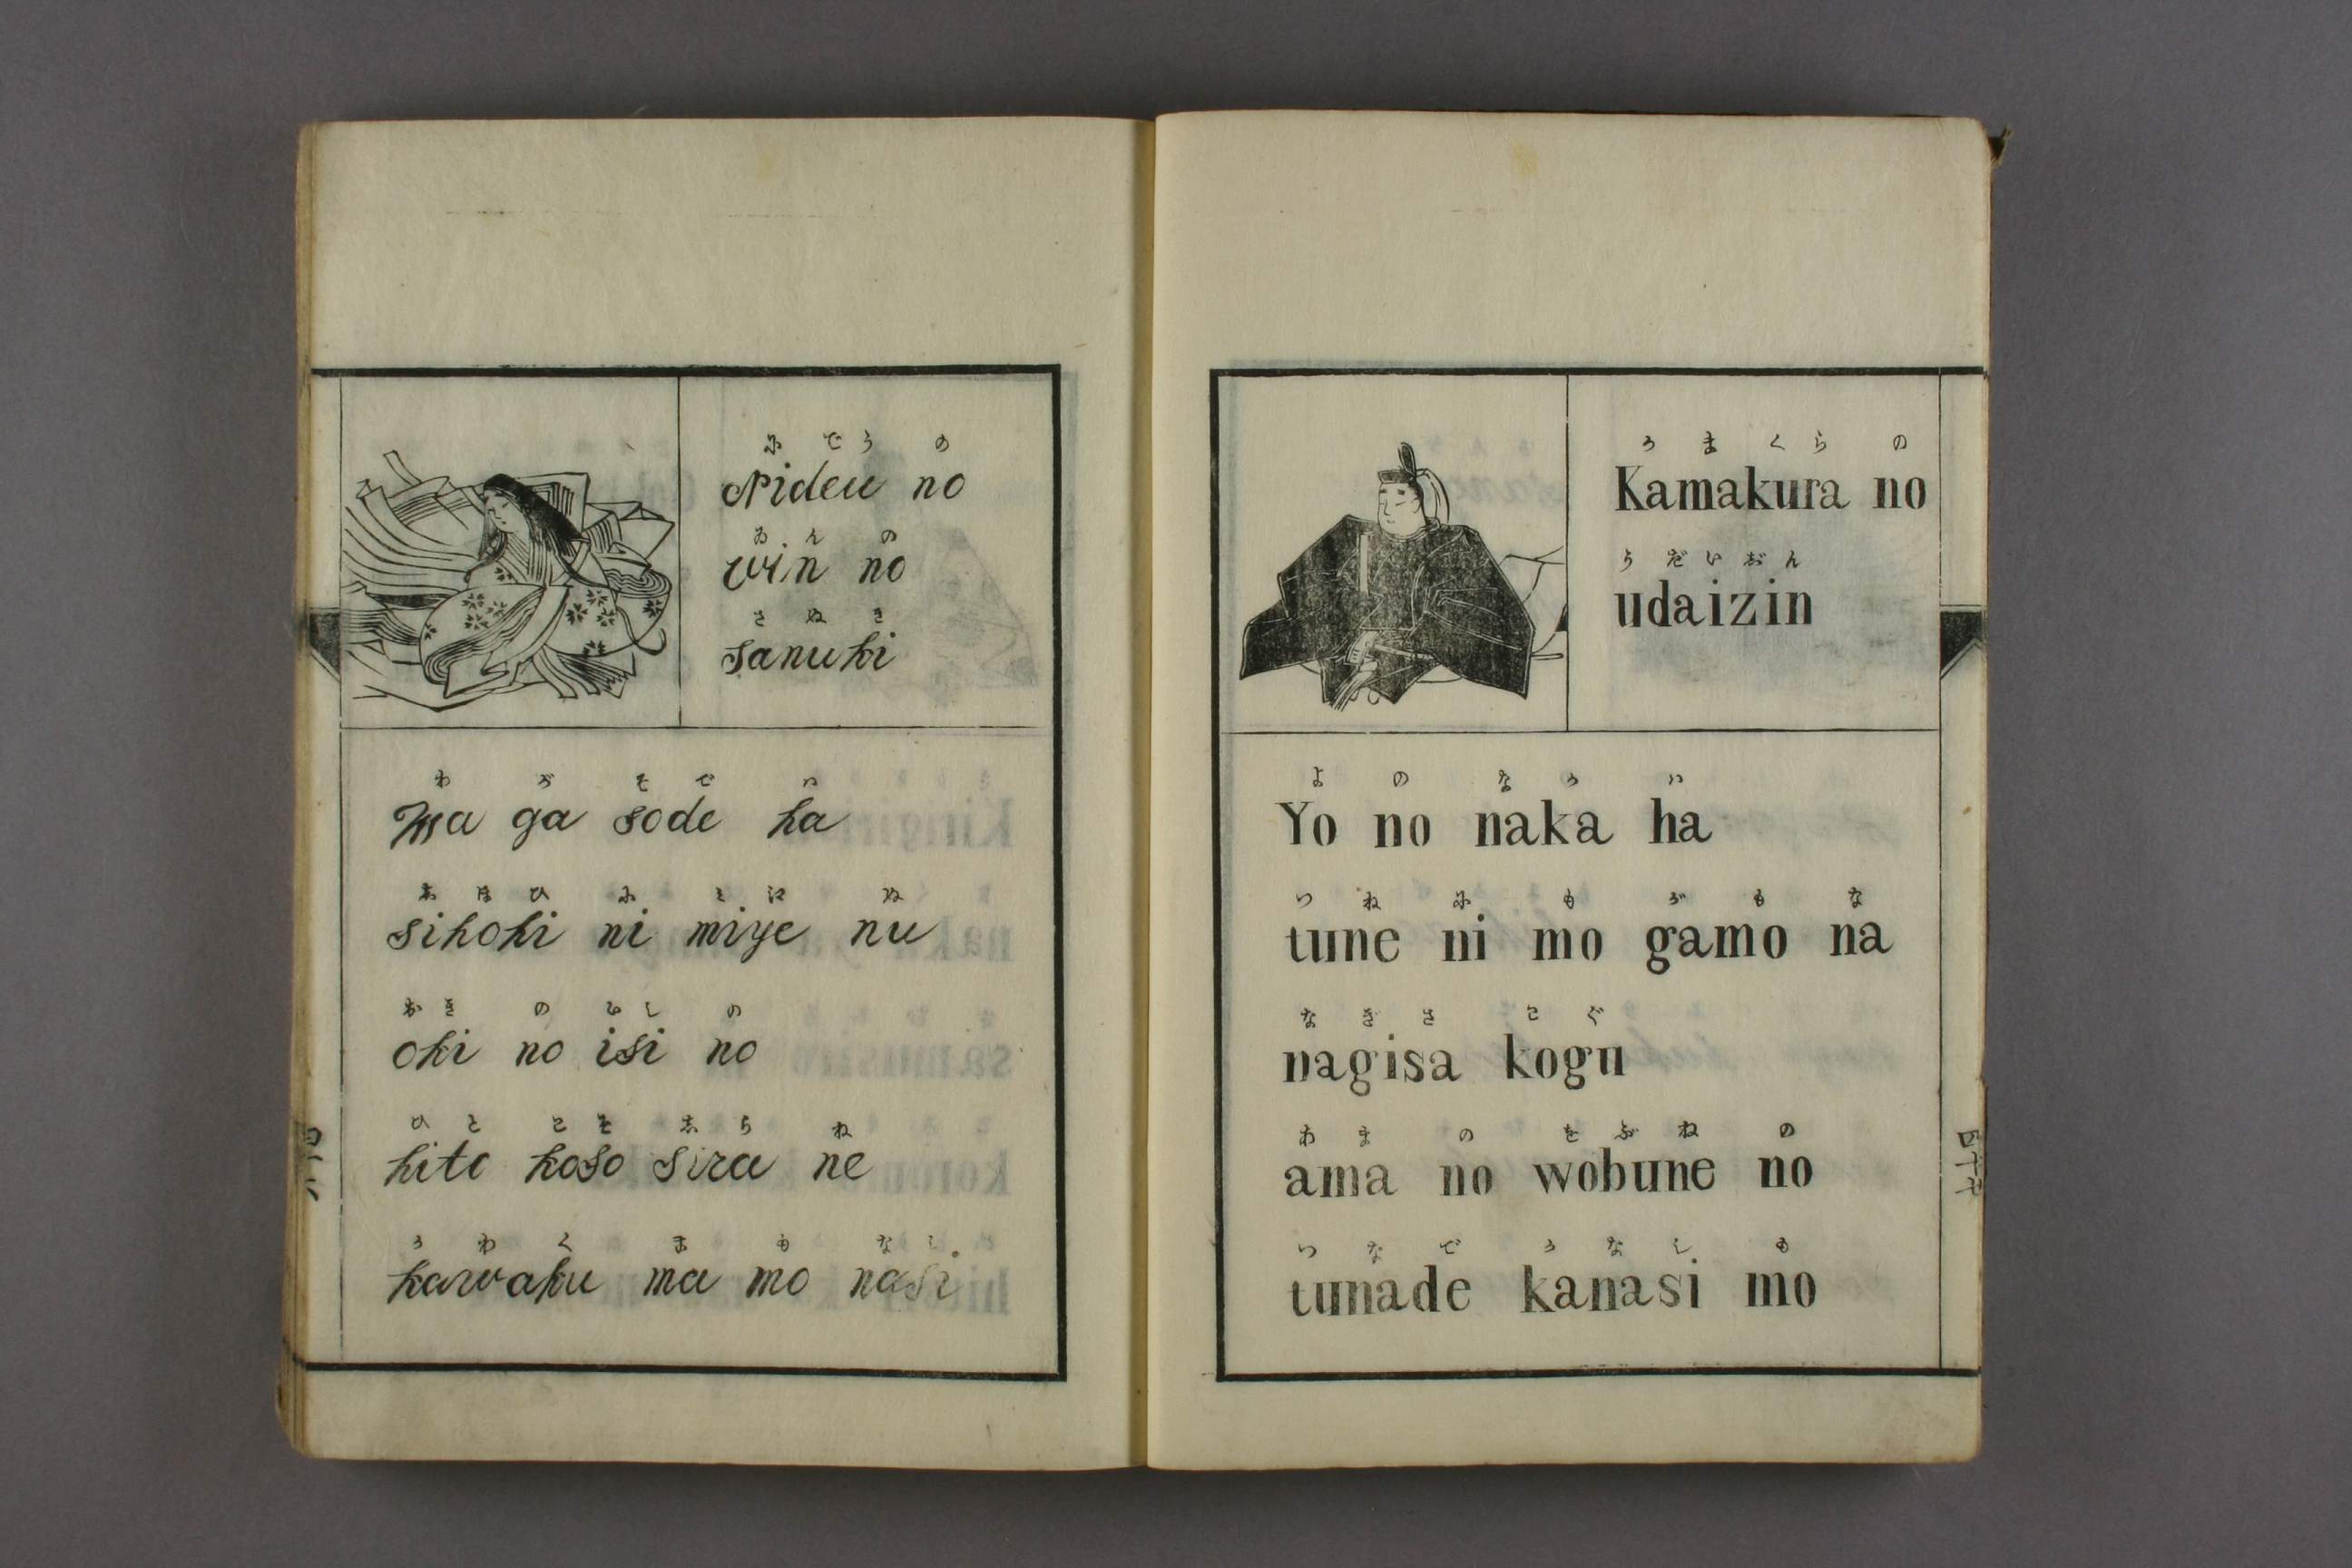 にでうの
Nideu no
ゐんの
win no
さぬき
sanuki
わがそでハ
Wa ga sode ha
しほひにミえぬ
sihohi ni miye nu
おきのいしの
oki no isi no
ひとこそしらね
hito koso sira ne
かわくまもなし
kawaku ma mo nasi
かまくらの
Kamakura no
うだいじん
udaizin
よのなかハ
Yo no naka ha
つねにもがもな
tune ni mo gamo na
なぎさこぐ
nagisa kogu
あまのをぶねの
ama no wobune no
つなでかなしも
tunade kanasi mo